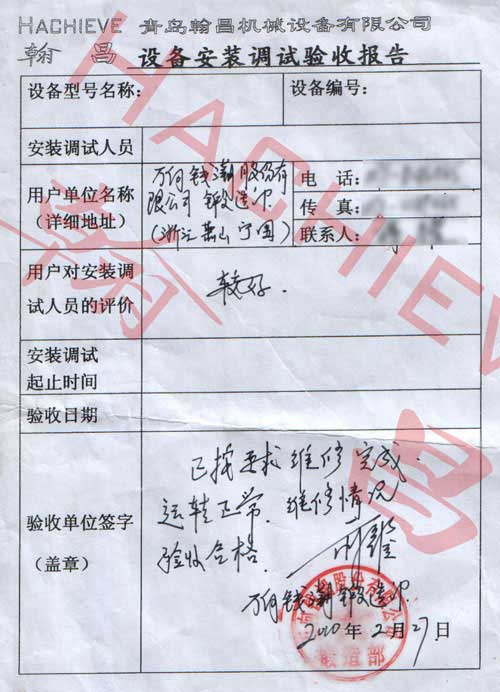 HACHIEVE 青岛翰昌机械设备有限公司
翰昌 设备安装调试验收报告
设备型号名称：
设备编号：
安装调试人员
用户单位名称
（详细地址）
万向钱潮股份有
限公司 锻造
（浙江萧山宁围）
电 话：
传 真：
联系人：
用户对安装调
试人员的评价
较好.
安装调试
起止时间
验收日期
验收单位签字
（盖章）
已按要求维修完成.
运转正常. 维修情况
验收合格.
万向钱潮 锻造
2010年2月27日
股份有限公司
锻造部
HACHIEVE
翰昌